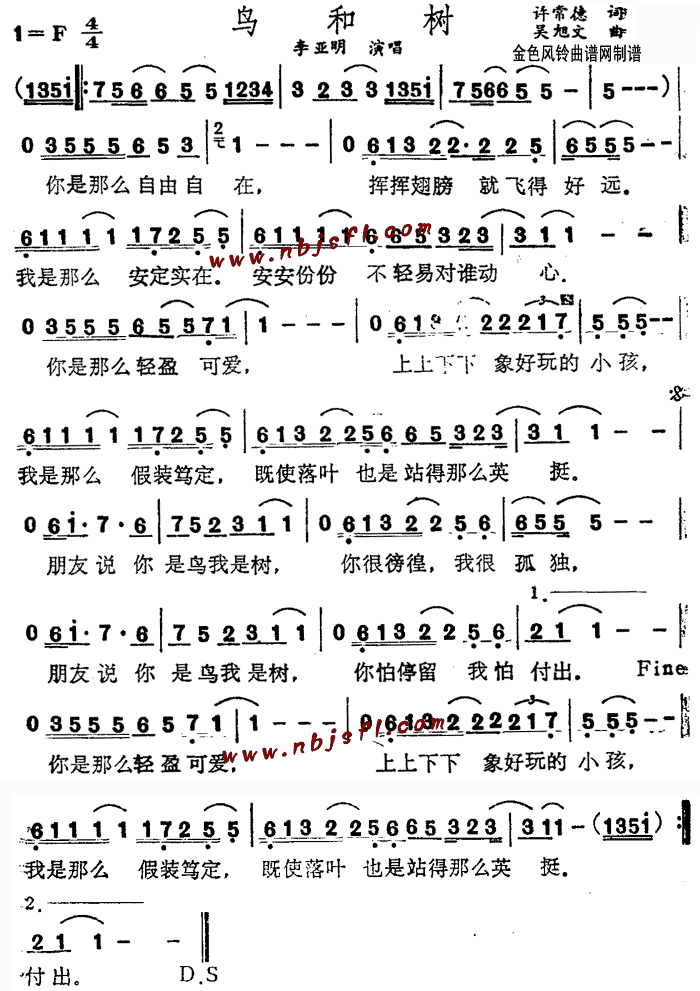 鸟和树
1=F 4/4
许常德 词
吴旭文 曲
李亚明 演唱
金色风铃曲谱网制谱
(1351 :756655 1234 | 3233 1351 | 7566 55- | 5---)
0 35555653 | 2 1--- | 0 6132 2·225 | 6555--
你是那么自由自 在, 挥挥翅膀 就飞得 好 远.
61111 17255 | 61111 665323 | 311--
我是那么 安定实在. 安安份份 不轻易对谁动 心.
www.nbjsfl.com
0 355556557 1 | 1--- | 0 61 222217 | 5555--
你是那么轻盈 可爱, 上上下下 象好玩的 小孩,
61111 17255 | 6132256 65323 | 311--
我是那么 假装笃定, 既使落叶 也是站得那么英 挺.
0 6i·7·6 | 752311 | 0 6132256 | 6555--
朋友说 你 是鸟我是树, 你很徬徨, 我很 孤 独,
1.
0 6i·7·6 | 752311 | 0 6132256 | 211--
朋友说 你 是鸟我是树, 你怕停留 我怕 付出. Fine
3
0 35555657 1 | 1--- | 0 613222222217 | 5555--
你是那么轻盈可爱, 上上下下 象好玩的 小孩,
www.nbjsfl.com
61111 17255 | 61322566 5323 | 311-(1351) :
我是那么 假装笃定, 既使落叶 也是站得那么英 挺.
2.
211--
付出。 D.S